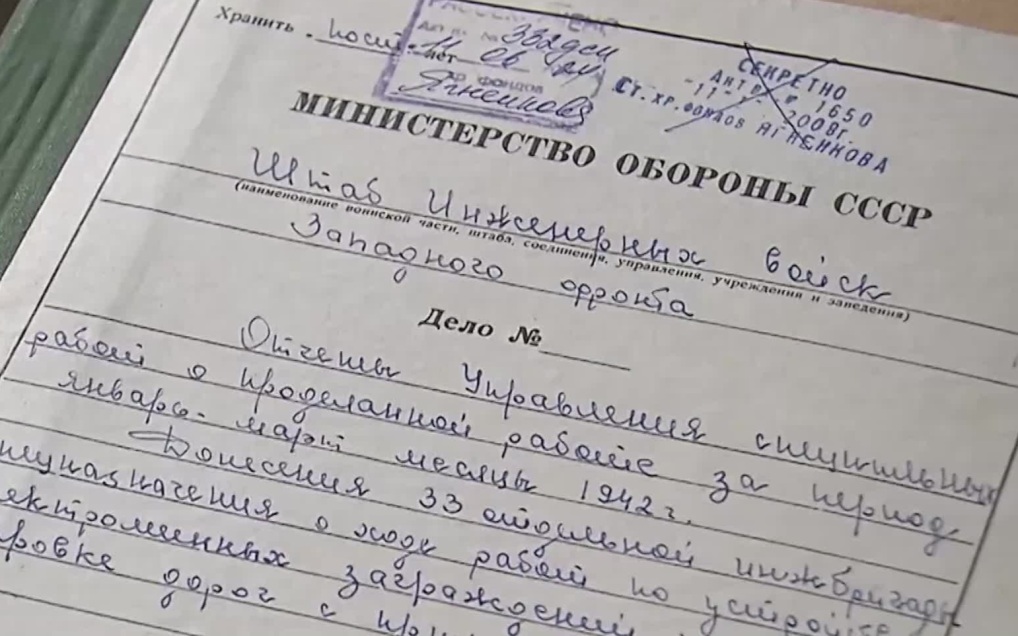 Хранить пост.
Ягненкова
СЕКРЕТНО
Акт № 1650
-11- 2008г.
СТ. ХР. ФОНДОВ ЯГНЕНКОВА
МИНИСТЕРСТВО ОБОРОНЫ СССР
Штаб Инженерных войск
(наименование воинской части, штаба, соединения, управления, учреждения и заведения)
Западного фронта
Дело №
Отчеты Управления специальных
работ о проделанной работе за период
январь-март месяцы 1942 г.
Донесения 33 отдельной инжбригады
спецназначения о ходе работ по устройстве
ектроминных заграждений
ровке дорог с